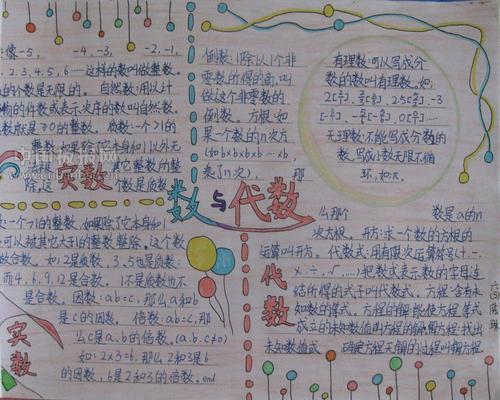 像-5, -4,-3, -2,-1,
2.3,4.5,6……这样的数叫做整数。
的个数是无限的。 自然数:用以计
物的件数或表示次序的数叫自然数。
数就是≥0的整数。质数:一个>1的
整数,如果除了它本身和1以外无
它整数整
除,这 个数是质数
实数
是一个>1的整数,如果除了它本身和1
可以被其它大于1的整数整除,这个数
做合数。如:2是质数,3,5也是质数;
而4,6,9,12是合数。1不是质数也不
是合数。因数:ab=c,那么a和b
是c的因数。倍数:ab=c,那
么c是a,b的倍数。(a.b.c≠0)
如:2×3=6,那么2和3是6
的因数,6是2和3的倍数。end
实数
数与代数
倒数:1除以1个非
零数所得的商,叫
做这个非零数的
倒数。方根:如
果一个数的n次方
(如b×b×b×b…×b,
乘了n次), 那
有理数:可以写成分
数的数叫有理数。如:
无理数:不能写成分数的
数,写成小数无限不循
环,如:π。
么那个 数是a的n
次方根。开方:求一个数的方根的
运算叫开方。代数式:用有限次运算符号(+.-
.×.÷.√……)把数或表示数的字母连
结所得的式子叫代数式。方程:含有未
知数的等式。方程的解:能使方程等式
成立的未知数值叫方程的解。解方程:找出
未知数值或 确定方程无解的过程叫解方程。
代数